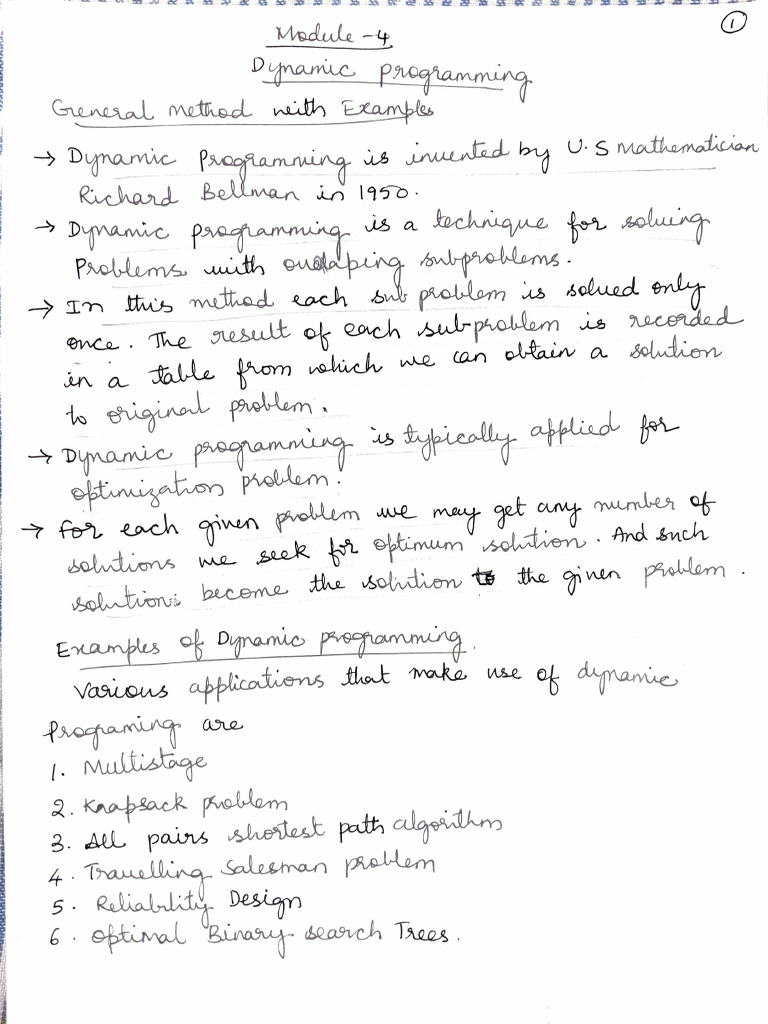 1
Module-4
Dynamic programming
General Method with Examples
→ Dynamic Programming is invented by U.S Mathematician
Richard Bellman in 1950.
→ Dynamic programming is a technique for solving
Problems with subproblems.
→ In this method each sub problem is solved only
once. The result of each sub-problem is recorded
in a table from which we can obtain a solution
to original problem.
→ Dynamic programming is typically applied for
optimization problem.
→ for each given problem we may get any number of
solutions we seek for optimum solution. And such
solutions become the solution to the given problem.
Examples of Dynamic programming.
Various applications that make use of dynamic
Programing are
1. Multistage
2. Knapsack problem
3. All pairs shortest path algorithm
4. Travelling Salesman problem
5. Reliability Design
6. optimal Binary search Trees.